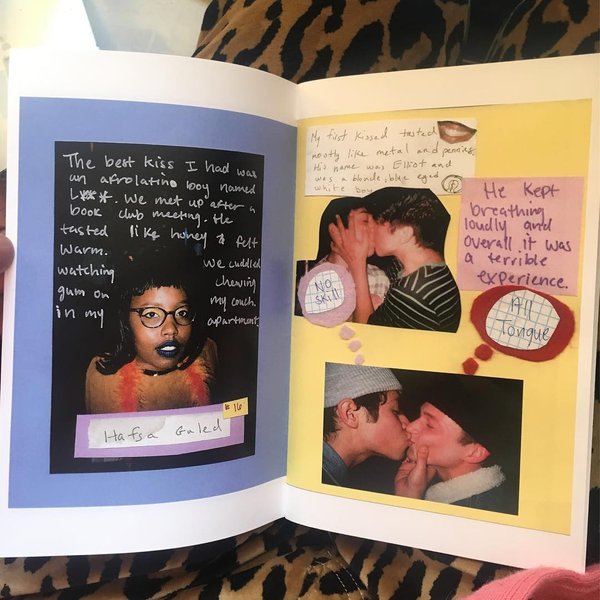 The best kiss I had was
an afrolatino boy named
L***. We met up after a
book club meeting. He
tasted like honey & felt
warm. We cuddled
watching chewing
gum on my couch.
in my apartment
Hafsa Guled
16
My first kissed tasted
mostly like metal and pennies.
His name was Elliot and
was a blonde, blue eyed
white boy
He kept
breathing
loudly and
overall it was
a terrible
experience.
No
skill
All
Tongue